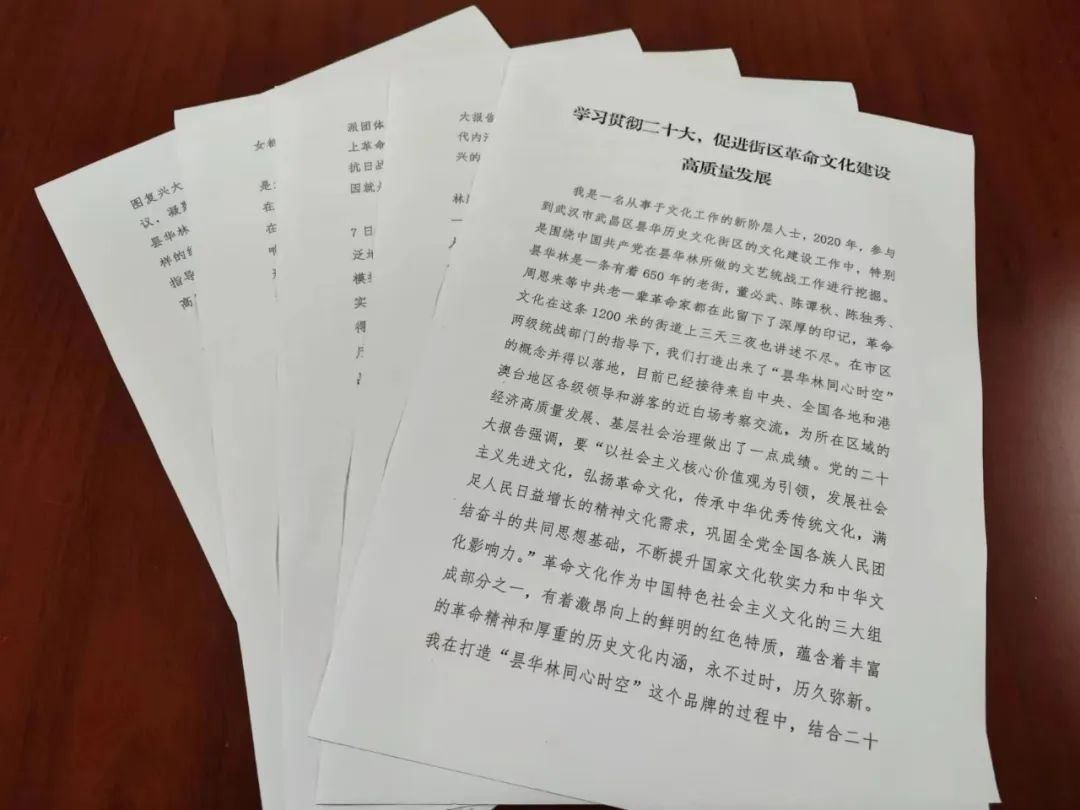 学习贯彻二十大，促进街区革命文化建设
高质量发展
我是一名从事于文化工作的新阶层人士，2020 年，参与
到武汉市武昌区昙华历史文化街区的文化建设工作中，特别
是围绕中国共产党在昙华林所做的文艺统战工作进行挖掘。
昙华林是一条有着 650 年的老街，董必武、陈谭秋、陈独秀、
周恩来等中共老一辈革命家都在此留下了深厚的印记，革命
文化在这条 1200 米的街道上三天三夜也讲述不尽。在市区
两级统战部门的指导下，我们打造出来了“昙华林同心时空”
的概念并得以落地，目前已经接待来自中央、全国各地和港
澳台地区各级领导和游客的近白场考察交流，为所在区域的
经济高质量发展、基层社会治理做出了一点成绩。党的二十
大报告强调，要“以社会主义核心价值观为引领，发展社会
主义先进文化，弘扬革命文化，传承中华优秀传统文化，满
足人民日益增长的精神文化需求，巩固全党全国各族人民团
结奋斗的共同思想基础，不断提升国家文化软实力和中华文
化影响力。”革命文化作为中国特色社会主义文化的三大组
成部分之一，有着激昂向上的鲜明的红色特质，蕴含着丰富
的革命精神和厚重的历史文化内涵，永不过时，历久弥新。
我在打造“昙华林同心时空”这个品牌的过程中，结合二十
大报告
代内
兴的
林
一
派团体
上革命
抗日战
因就
7 日
泛
模
实
得
女
是
在
在
图复兴大
议，凝
昙华林
样的
指导
高